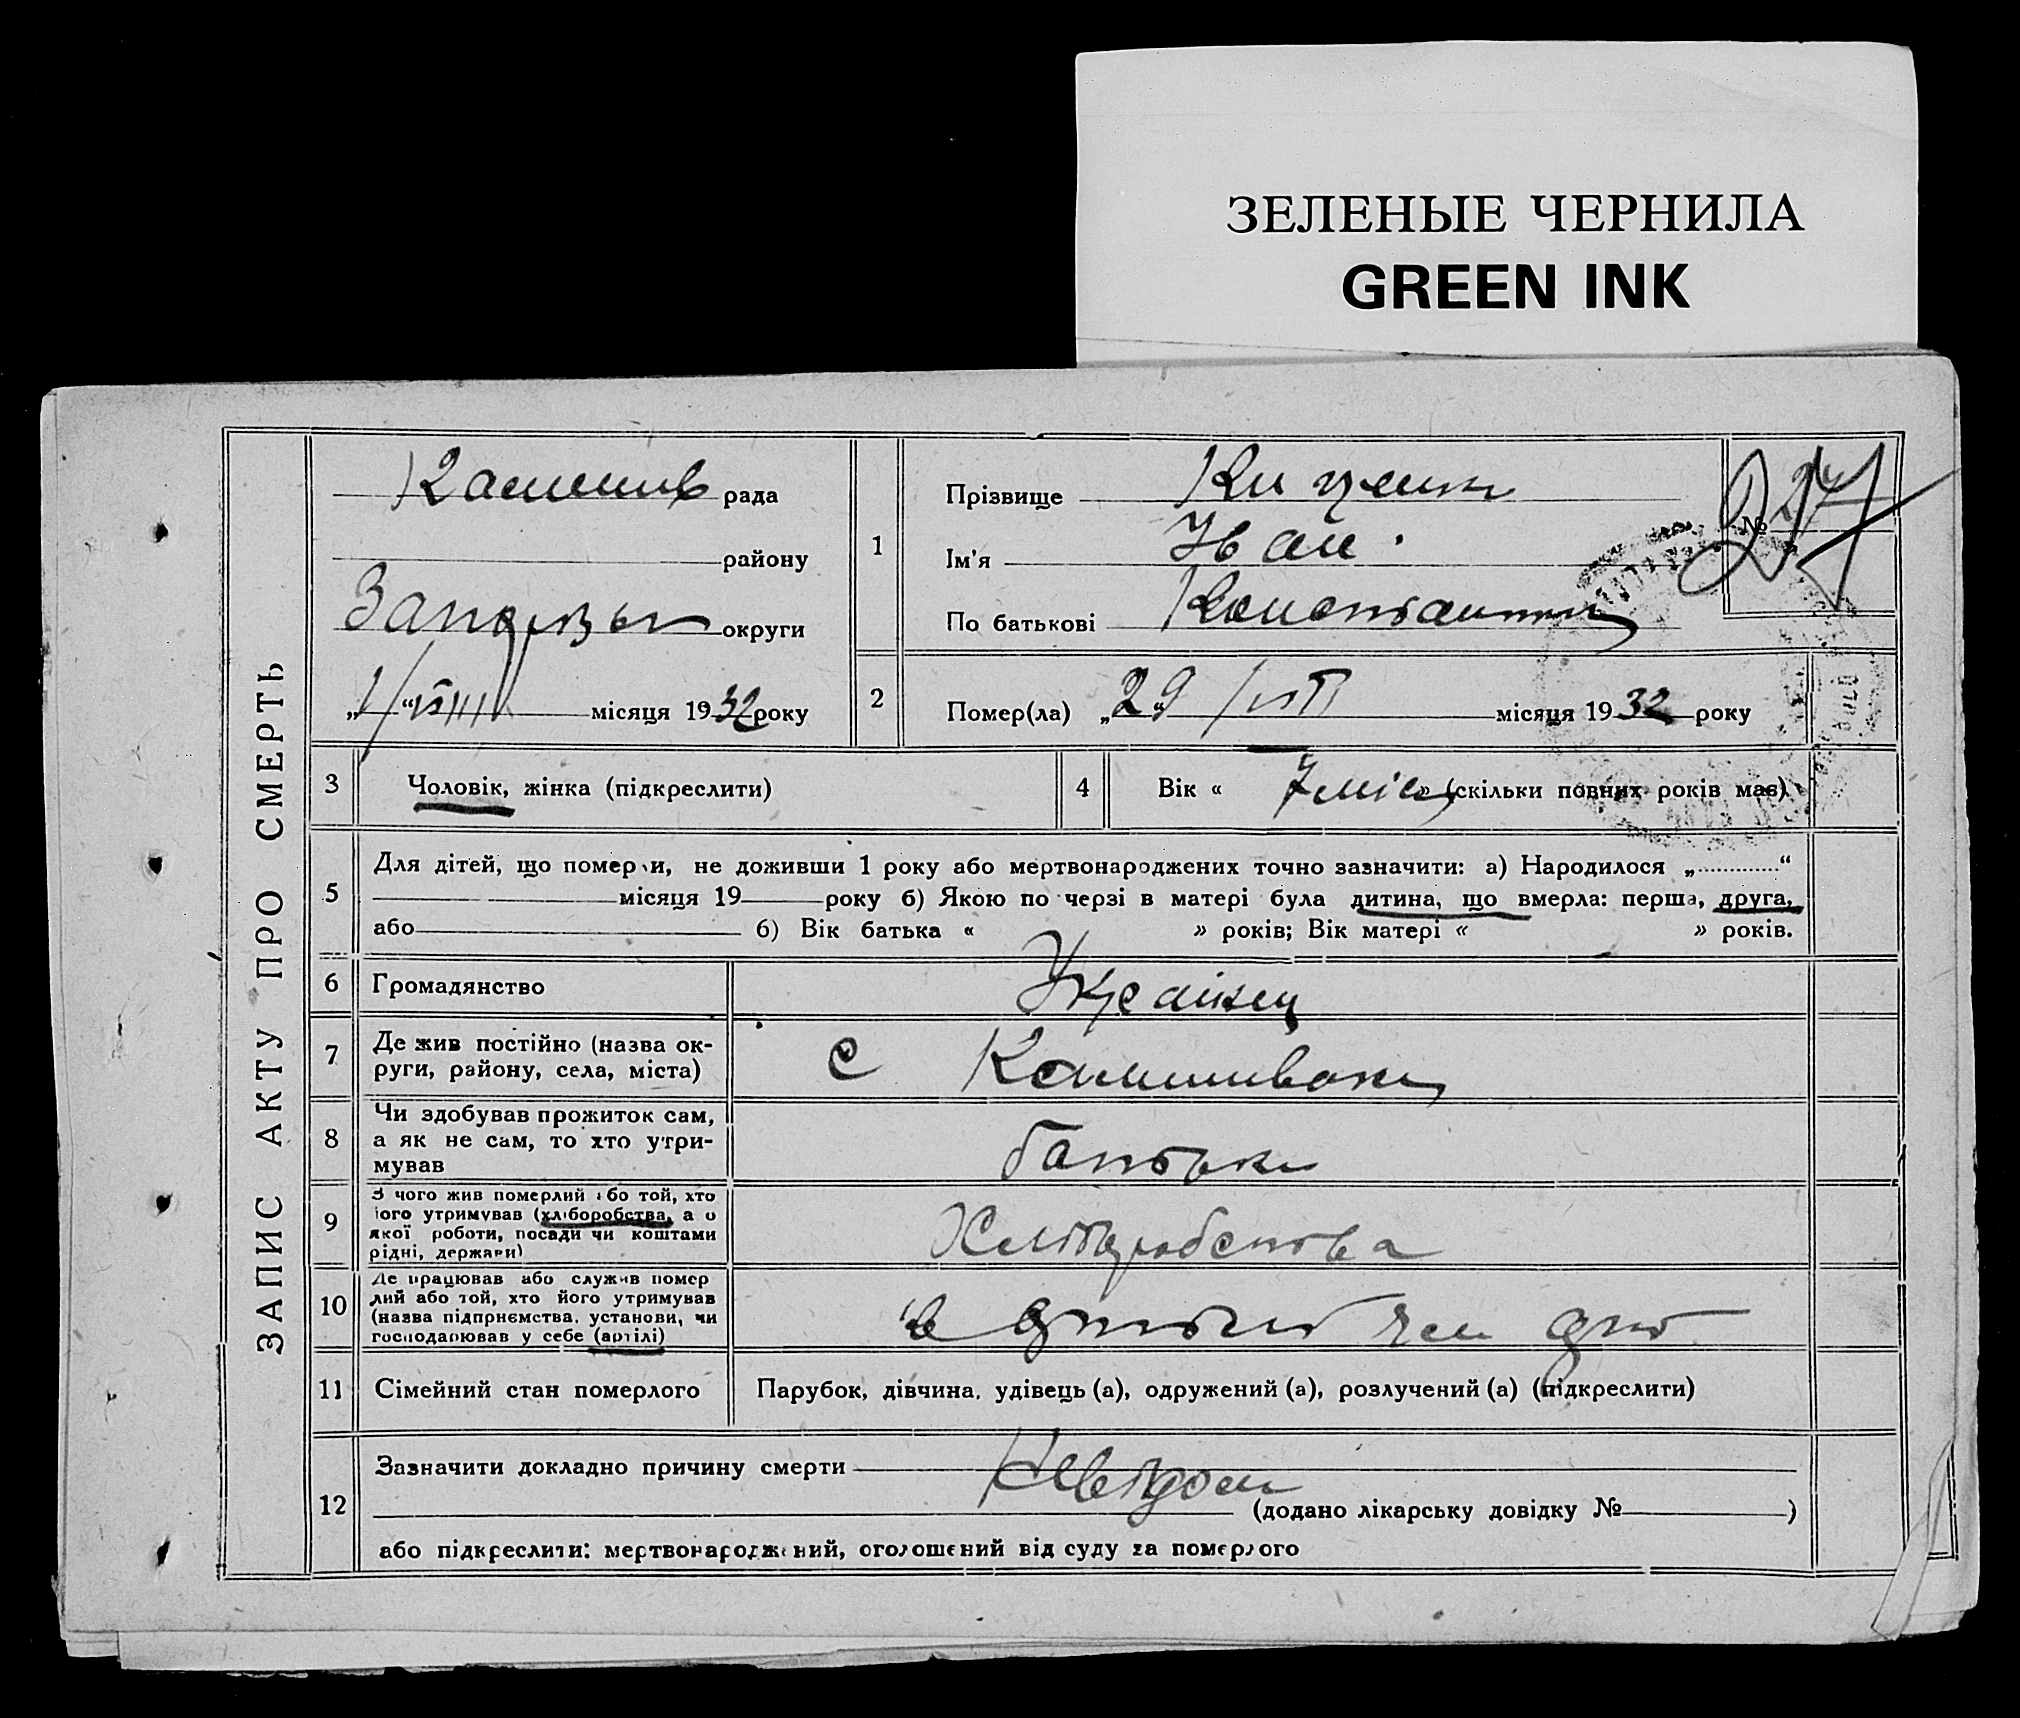 ЗЕЛЕНЫЕ ЧЕРНИЛА
GREEN INK
ЗАПИС АКТУ ПРО СМЕРТЬ
рада
району
округи
„1/“VIII місяця 1932 року
1
Прізвище
Ім'я Іван
По батькові
№ 27
217
2
Помер(ла) „29“ місяця 1932 року
3
Чоловік, жінка (підкреслити)
4
Вік « 7 міс » (скільки повних років має)
5
Для дітей, що померли, не доживши 1 року або мертвонароджених точно зазначити: а) Народилося „ “
місяця 19 року б) Якою по черзі в матері була дитина, що вмерла: перша, друга,
або б) Вік батька « » років; Вік матері « » років.
6
Громадянство
Українец
7
Де жив постійно (назва ок-
руги, району, села, міста)
с Комишиваха
8
Чи здобував прожиток сам,
а як не сам, то хто утри-
мував
батьки
9
З чого жив померлий або той, хто
його утримував (хліборобства, а о
якої роботи, посади чи коштами
рідні, держави)
Хліборобства
10
Де працював або служив помер
лий або той, хто його утримував
(назва підприємства, установи, чи
господарював у себе (артілі)
11
Сімейний стан померлого
Парубок, дівчина, удівець (а), одружений (а), розлучений (а) (підкреслити)
12
Зазначити докладно причину смерти Невідом
(додано лікарську довідку № )
або підкреслити: мертвонароджений, оголошений від суду за померлого